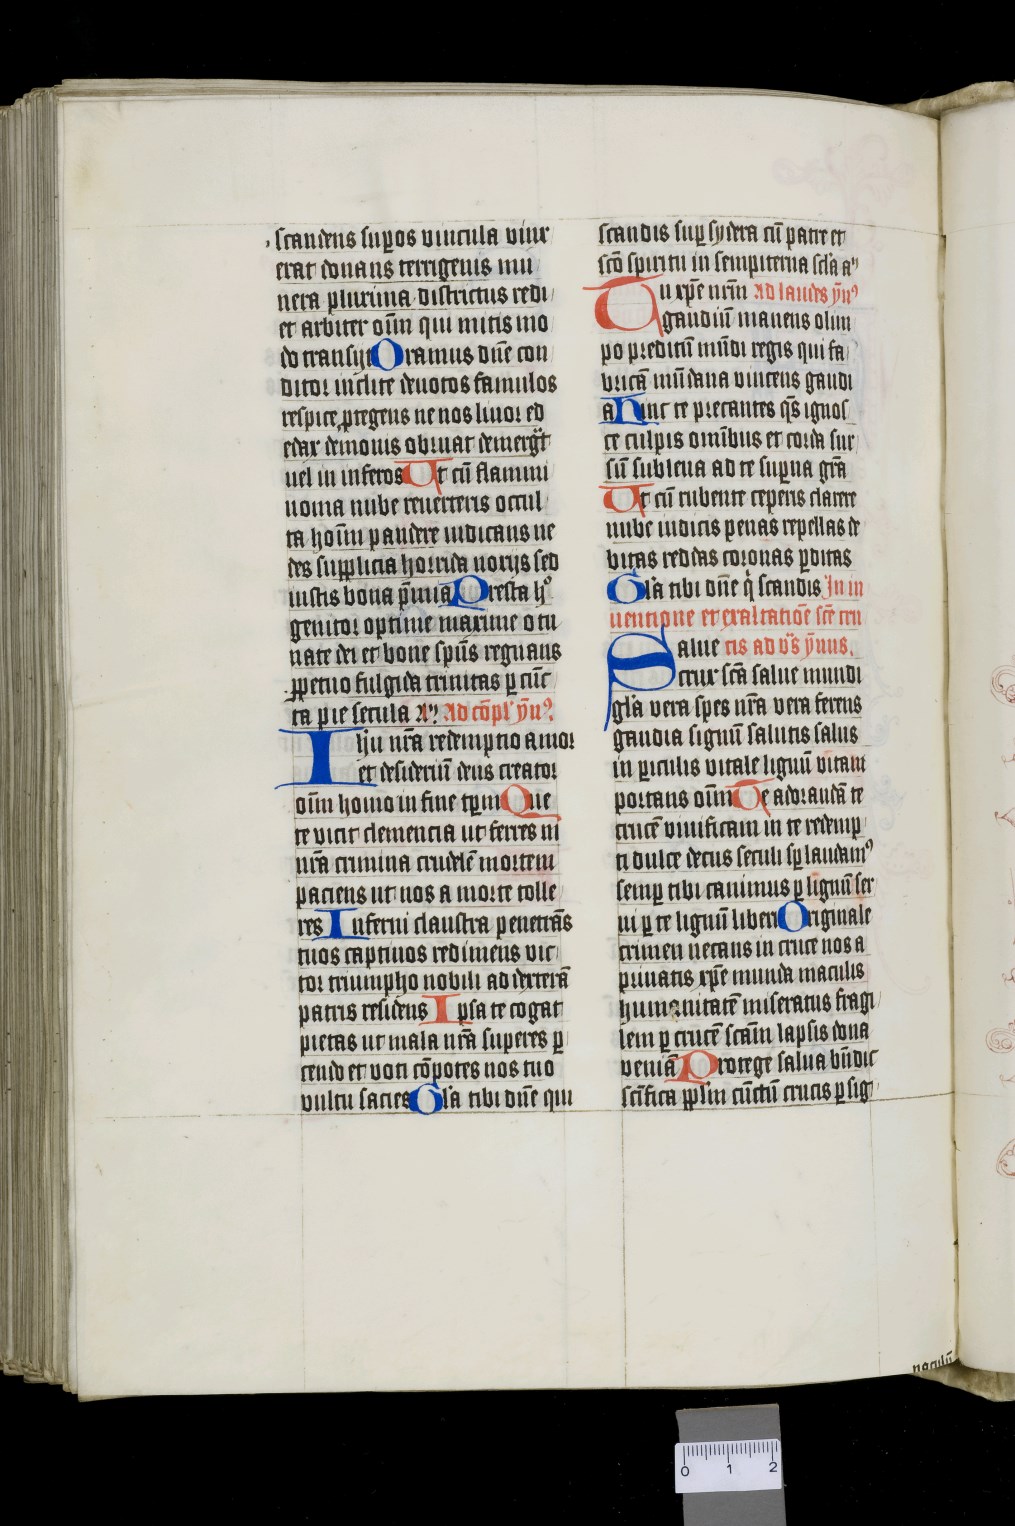 scandens sup̱os vincula vinx
erat donans terrigenis mu
nera plurima districtus redi
et arbiter oīm qui mitis mo
do transijt Oramus dn̄e con
ditor inclite devotos famulos
respice ꝓtegens ne nos livor ed
edax demonis obruat demerg̅t
uel in inferos Ut cū flammi
uoma nube reuerteris occul
ta hoīm pandere iudicans ne
des supplicia horrida noxijs sed
iustis bona p̄mia Presta hͦ
genitor optime maxime o tu
nate dei et bone sp̄us regnans
ꝑpetuo fulgida trinitas ꝑ cūc
ta pie secula A᷒ Ad cōpl' ȳnꝰ.
Ihū nr̄a redemptio amor
et desideriū deus creator
oīm homo in fine tp̄m Que
te vicit clemencia ut ferres ni
nr̄a crimina crudelē mortem
paciens ut nos a morte tolle
res Inferni claustra penetrās
tuos captivos redimens vic
tor triumpho nobili ad dexterā
patris residens Ipsa te cogat
pietas ut mala nr̄a superes ꝑ
cendo et voti cōpotes nos tuo
vultu sacies Gl'a tibi dn̄e qui
scandis sup̱ sydera cū patre et
scō spiritu in sempiterna scl'a a᷒
Tu xp̄e nr̄m Ad laudes ȳnꝰ
gaudiū manens olim
po preditū mūdi regis qui fa
bricā mūdana vincens gaudi
a Hinc te precantes qs̄ ignos
ce culpis omībus et corda sur
sū subleua ad te sup̱na gr̄a
Ut cū rubente ceperis clarere
nube iudicis penas repellas de
bitas reddas coronas ꝑditas
Gl'a tibi dn̄e q̇ scandis In in
uentione et exaltatiōe sc̄e cru
Salue cis ad vs̄ ȳnus.
crux sc̄a salue mundi
gl'a vera spes nr̄a vera ferens
gaudia signū salutis salus
in ꝑiculis vitale lignū vitam
portans oīm Te adorandā te
crucē viuificam in te redemp
ti dulce decus seculi sꝑ laudamꝰ
semꝑ tibi canimus ꝑ lignū ser
ui ꝑ te lignū liberi Originale
crimen necans in cruce nos a
priuatis xp̄e munda maculis
humanitatē miseratus fragi
lem ꝑ crucē scām lapsis dona
veniā Protege salua bn̄dic
sc̄ifica pp̄lm cūctū crucis ꝑ sig
naculū